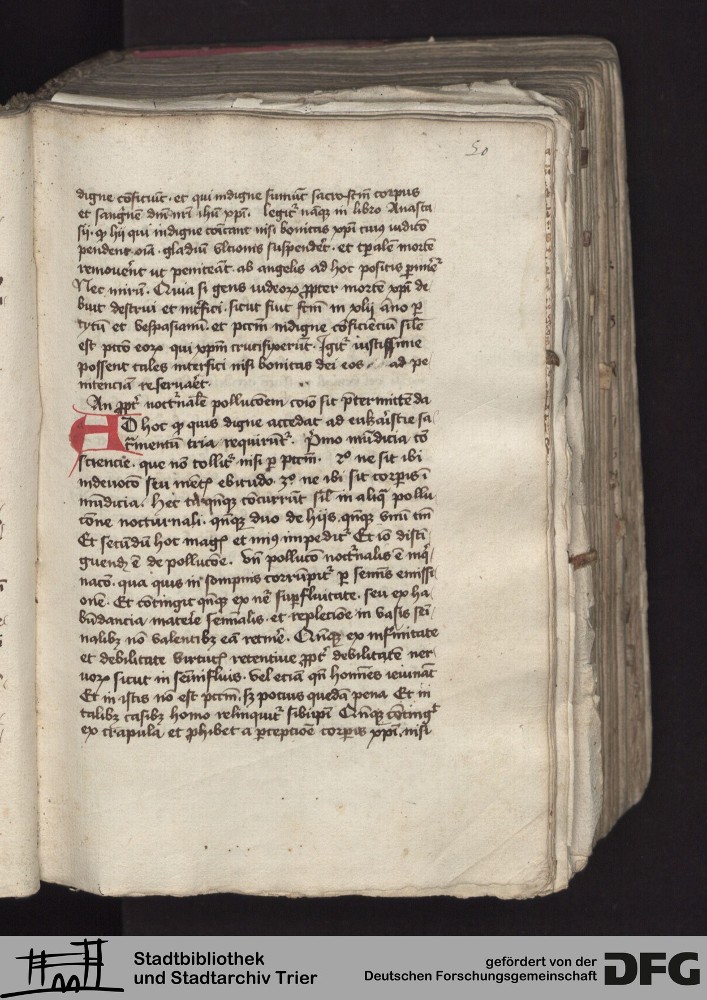 50
digne cōficiūt · et qui indigne sumūt sacro-stm̄ corpus
et sangʼnē dn̄i nr̄i ihū xp̄i · legitʳ nāqꝫ in libro Anasta
sij · ꝙ hij qui indigne cōicant nisi bonitas xp̄i cuiꝰ iudicō
pendent oīa · gladiū vlcionis suspendēt · et tp̄alē mortē
removēnt ut peniteāt · ab angelis ad hoc positis
Nec mirū · Quia si gens iudeoꝝ ꝓpter mortē xp̄i de
buit destrui et sicut fuit fc̄m in xlij āno ꝑ
tytū et vespasianū · et pctm̄ indigne cōficiēciū sil̄e
est pctō eoꝝ qui xp̄m crucifixerūt · Igitʳ iustissime
possent tales interfici nisi bonitas dei eos ad pe
nitenciam reservaēt ·
An ꝓptʳ noctʼnalē polluc̄oem cōio sit p̄termittēda
AD hoc ꝙ quis digne accedat ad eukaristie sa
cʼmentū tria requirūtʳ · Pʼmo mūdicia cō
sciencie · que nō tollitʳ nisi ꝑ pctm̄ · 2º ne sit ibi
indevocō seu mētꝭ ebitudo · 3º ne ibi sit corpis ī
mūdicia · Hec qn̄qꝫ cōcurrūt sil̄ in aliqͣ pollu
cōne nocturnali · qn̄qꝫ duo de hijs · qn̄qꝫ vnū tm̄
Et secūdū hoc magꝭ et minꝰ impeditʳ Et iō disti
guendꝫ ē de pollucōe · Vn̄ pollucō noctʼnalis ē īqͥ
nacō · qua quis in sompnis corrūpitʳ ꝑ semīs emissi
onē · Et cōtingit qn̄qꝫ ex nēˢ suꝑfluitate · seu ex ha
būdancia materie semīalis · et replecioē in vasis semī
nalibꝫ nō valentibꝫ eā retinē · Qn̄qꝫ ex infirmitate
et debilitate virtutꝭ retentive ꝓptʳ debilitatē ner
uoꝝ sicut in semīfluis · vel etiā qn̄ homīes ieiunāt
Et in istis nō est pctm̄ · sꝫ pocius quedā pena Et in
talibꝫ casibꝫ homo relinquitʳ sibiip̄i Qn̄qꝫ cōtingʳ
ex crapula et ꝓhibet a ꝑcepcioē corpis xp̄i · nisi
Stadtbibliothek
und Stadtarchiv Trier
gefördert von der
Deutschen Forschungsgemeinschaft
DFG